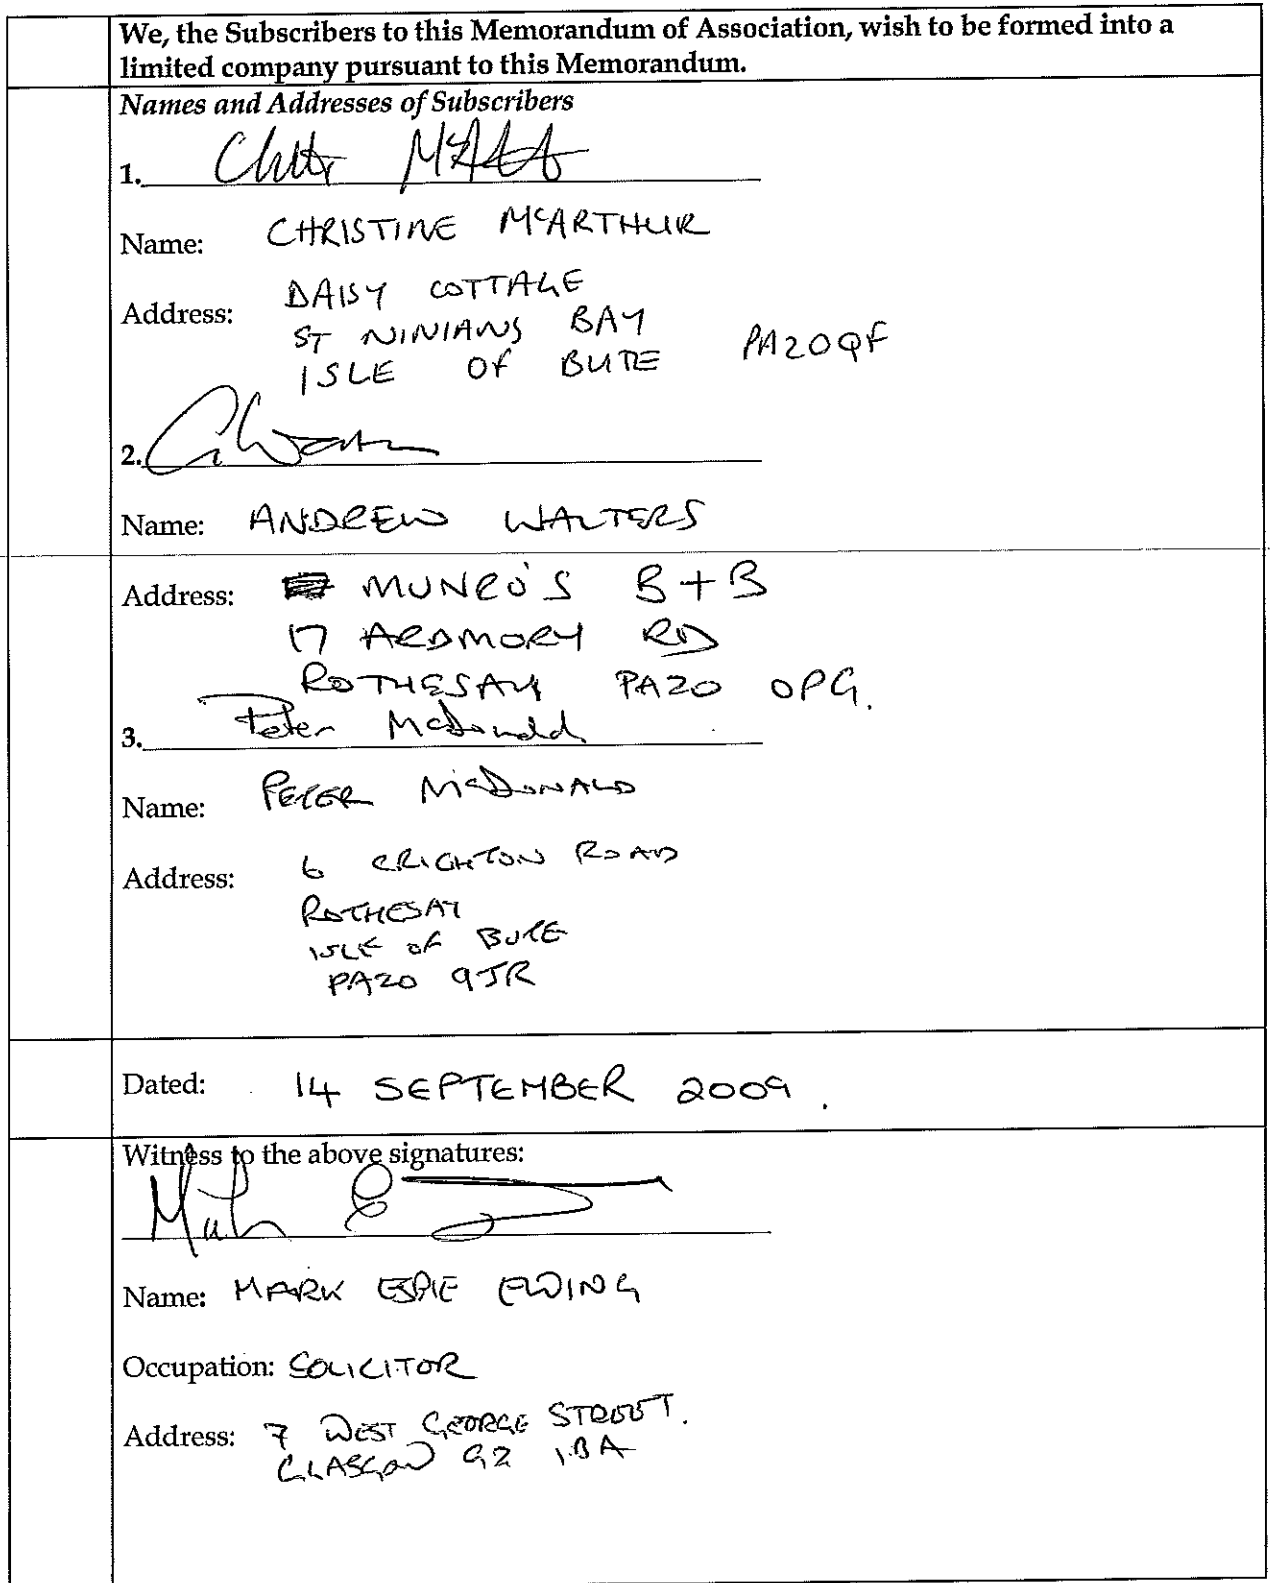 We, the Subscribers to this Memorandum of Association, wish to be formed into a
limited company pursuant to this Memorandum.
Names and Addresses of Subscribers
1.
Name: CHRISTINE McARTHUR
Address: DAISY COTTAGE
ST NINIANS BAY
ISLE OF BUTE PA20QF
2.
Name: ANDREW WALTERS
Address: MUNRO'S B + B
17 ARDMORY RD
ROTHESAY PA20 0PG.
3. Peter McDonald
Name: PETER McDONALD
Address: 6 CRICHTON ROAD
ROTHESAY
ISLE OF BUTE
PA20 9JR
Dated: 14 SEPTEMBER 2009.
Witness to the above signatures:
Name: MARK ESPIE EWING
Occupation: SOLICITOR
Address: 7 WEST GEORGE STREET.
GLASGOW G2 1BA